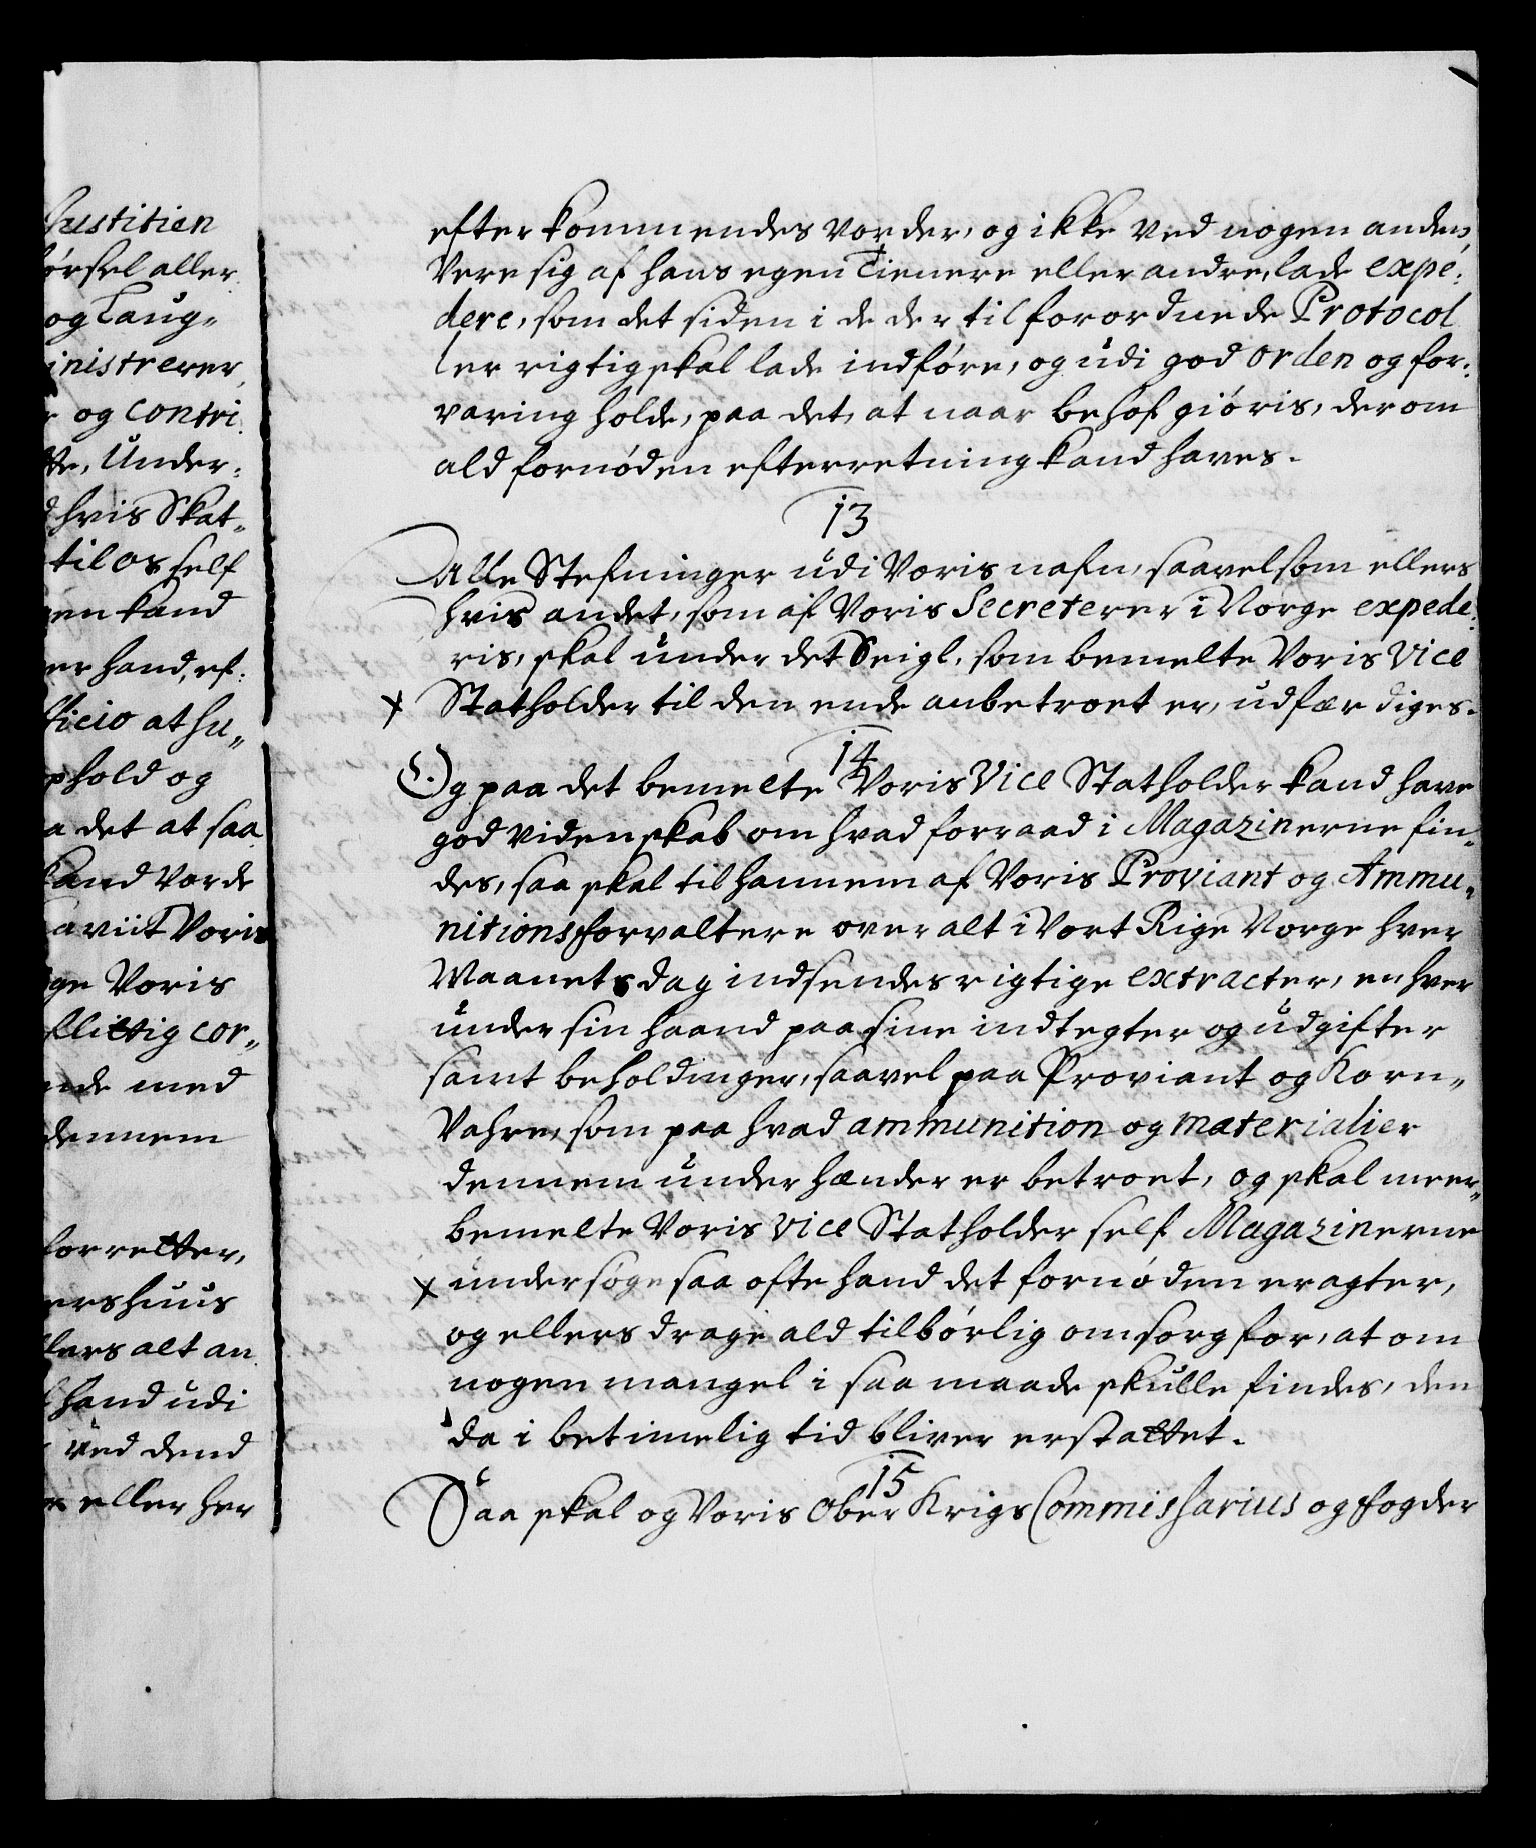 Justitien
ørsel aller
og Laug-
inistrerer
r og Contri
tte, Under:
d hvis Skat-
til os self
gen kand
er hand, ef:
fficio at hu-
phold og
a det at saa
kand vorde
aviit Voris
ge Voris
flittig cor-
nde med
dennem
forretter,
ershuus
lers alt an
hand udi
ved dend
eller her
efterkommendes vorder, og ikke ved nogen anden,
Vere sig af hans egen Tienere eller andre, lade expe:
dere, som det siden i de der til forordnede Protocol
ler rigtig skal lade indføre, og udi god orden og for:
varing holde, paa det, at naar behof giøris, derom
ald fornøden efterretning kand haves.
13
Alle Stefninger udi Voris nafn, saavelsom ellers
hvis andet, som af Voris Secreterer i Norge expede:
ris, skal under det Seigl, som bemelte Voris Vice
x Statholder til den ende anbetroet er, udfærdiges.
14
Og paa det bemelte Voris Vice Statholder kand have
god videnskab om hvad forraad i Magazinerne fin-
des, saa skal til hannem af Voris Proviant og Ammu-
nitionsforvaltere over alt i Vort Rige Norge hver
Maanets dag indsendes rigtige extracter, en hver
under sin haand paa sine indtegter og udgifter
samt beholdinger, saavel paa Proviant og Korn-
Vahre, som paa hvad ammunition og materialier
dennem under hænder er betroet, og skal meer-
bemelte Voris Vice Statholder self Magazinerne
x undersøge saa ofte hand det fornøden eragter,
og ellers drage ald tilbørlig omsorg for, at om
nogen mangel i saa maade skulle findes, den
da i betimelig tid bliver erstattet.
15
Saa skal og Voris Ober Krigs Commissarius og Fogder